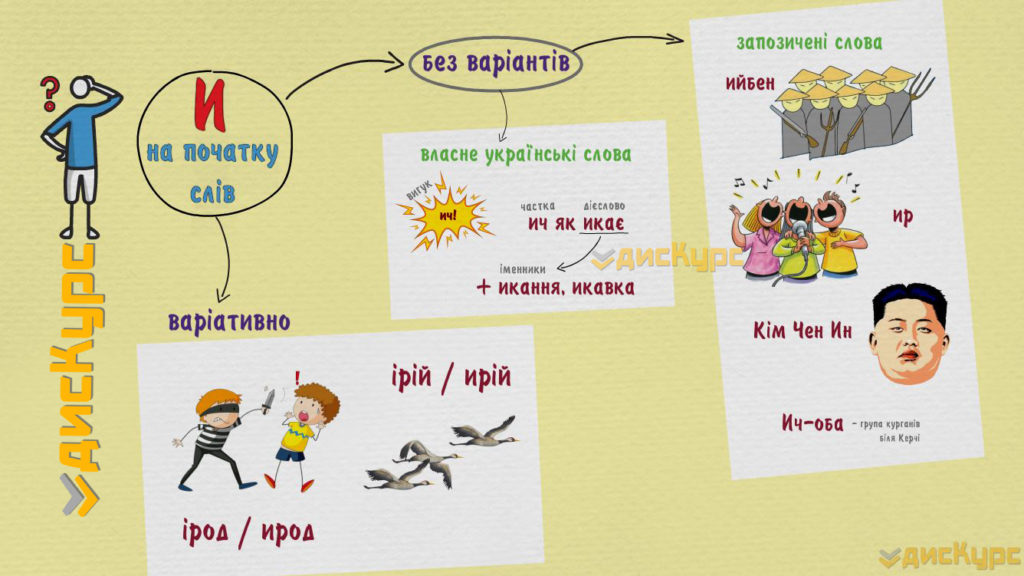 ?
И
на початку
слів
дисКурс
без варіантів
власне українські слова
вигук
ич!
частка дієслово
ич як икає
іменники
+ икання, икавка
дисКурс
запозичені слова
ийбен
ир
Кім Чен Ин
Ич-оба – група курганів
біля Керчі
варіативно
!
ірод / ирод
ірій / ирій
дисКурс